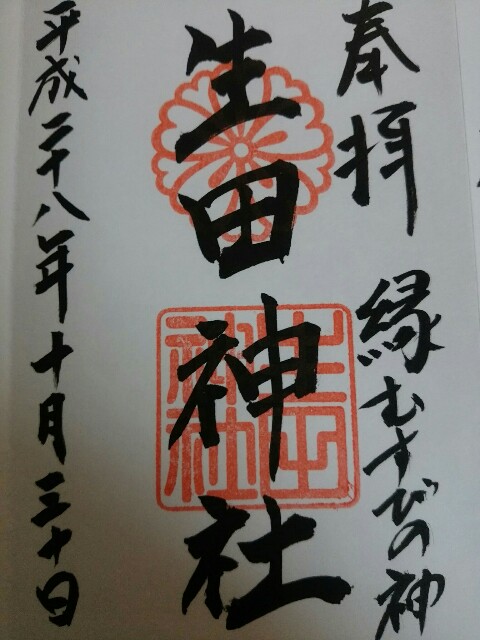 奉拝 縁むすびの神
生田神社
生田神社
平成二十八年十月三十日